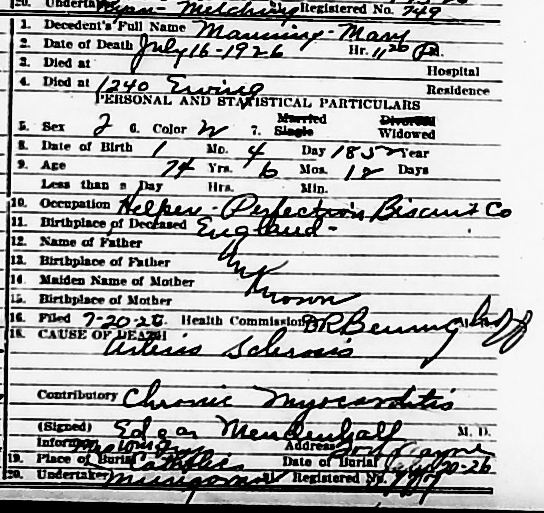 20. Undertaker Melching Registered No. 749
1. Decedent's Full Name Manning - Mary
2. Date of Death July 16-1926 Hr. 11 20 P.
3. Died at Hospital
4. Died at 1240 Ewing Residence
PERSONAL AND STATISTICAL PARTICULARS
5. Sex 2 6. Color W 7. Married Single Divorced Widowed
8. Date of Birth 1 Mo. 4 Day 1852 Year
9. Age 74 Yrs. 6 Mos. 12 Days
Less than a Day Hrs. Min.
10. Occupation Helper - Perfection Biscuit Co
11. Birthplace of Deceased England -
12. Name of Father
13. Birthplace of Father
14. Maiden Name of Mother
15. Birthplace of Mother
16. Filed 7-20-26 Health Commissioner
18. CAUSE OF DEATH
Arterio Sclerosis
Contributory Chronic Myocarditis
(Signed) Edgar Mendenhall M. D.
Informant Address Fort Wayne
19. Place of Burial Catholic Date of Burial July 20-26
20. Undertaker Registered No.